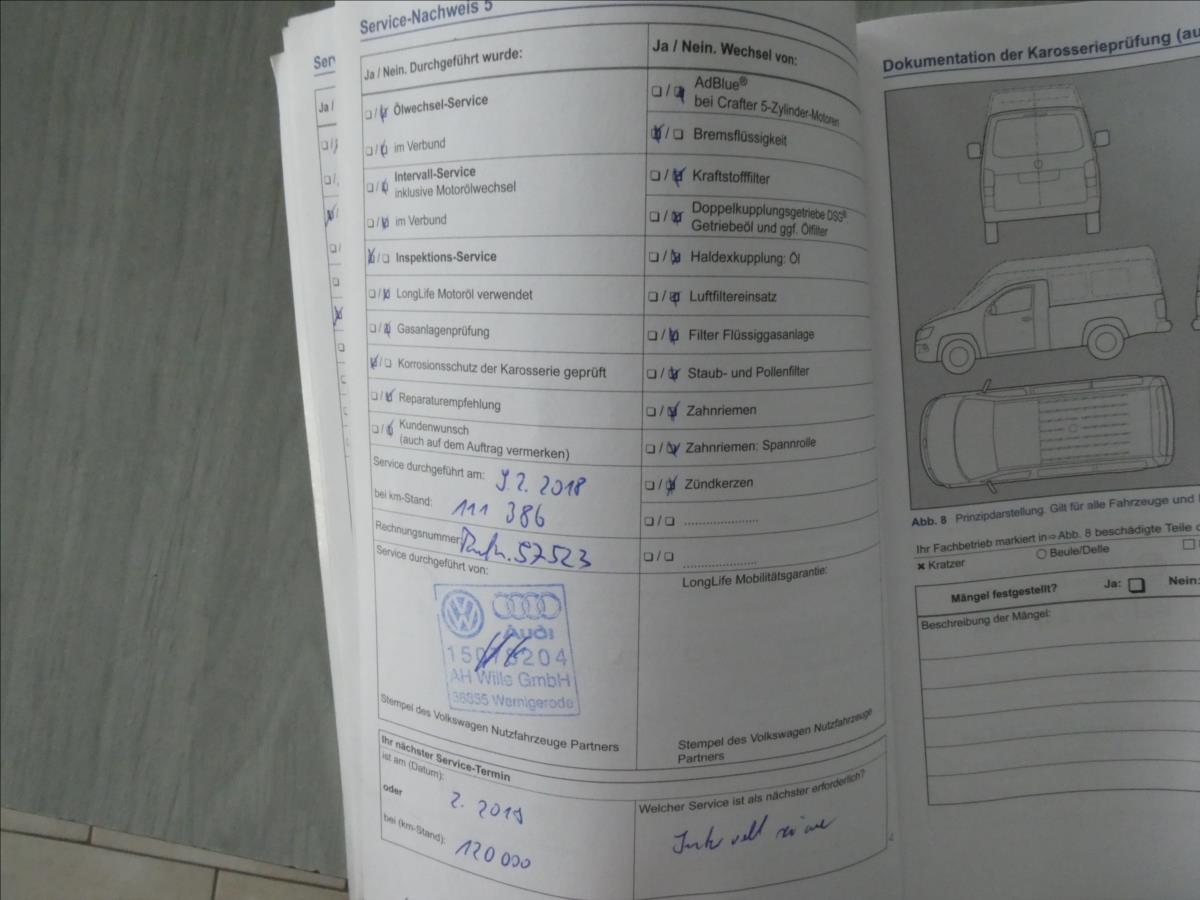 Service-Nachweis 5
Ja / Nein. Durchgeführt wurde:
❏ / ❏ Ölwechsel-Service
❏ / ❏ im Verbund
❏ / ❏ Intervall-Service
inklusive Motorölwechsel
❏ / ❏ im Verbund
❏ / ❏ Inspektions-Service
❏ / ❏ LongLife Motoröl verwendet
❏ / ❏ Gasanlagenprüfung
❏ / ❏ Korrosionsschutz der Karosserie geprüft
❏ / ❏ Reparaturempfehlung
❏ / ❏ Kundenwunsch
(auch auf dem Auftrag vermerken)
Service durchgeführt am: 9.2.2018
bei km-Stand: 111 386
Rechnungsnummer: 57523
Service durchgeführt von:
Audi
204
AH Wille GmbH
38855 Wernigerode
Stempel des Volkswagen Nutzfahrzeuge Partners
Ja / Nein. Wechsel von:
❏ / ❏ AdBlue®
bei Crafter 5-Zylinder-Motoren
❏ / ❏ Bremsflüssigkeit
❏ / ❏ Kraftstofffilter
❏ / ❏ Doppelkupplungsgetriebe DSG®
Getriebeöl und ggf. Ölfilter
❏ / ❏ Haldexkupplung: Öl
❏ / ❏ Luftfiltereinsatz
❏ / ❏ Filter Flüssiggasanlage
❏ / ❏ Staub- und Pollenfilter
❏ / ❏ Zahnriemen
❏ / ❏ Zahnriemen: Spannrolle
❏ / ❏ Zündkerzen
❏ / ❏ ....................
❏ / ❏ ....................
LongLife Mobilitätsgarantie:
Stempel des Volkswagen Nutzfahrzeuge
Partners
Ihr nächster Service-Termin
ist am (Datum):
oder 2. 2019
bei (km-Stand): 120 000
Welcher Service ist als nächster erforderlich?
Dokumentation der Karosserieprüfung (au
Abb. 8 Prinzipdarstellung. Gilt für alle Fahrzeuge und
Ihr Fachbetrieb markiert in ⇒ Abb. 8 beschädigte Teile
✖ Kratzer ○ Beule/Delle
Mängel festgestellt? Ja: ❏ Nein:
Beschreibung der Mängel:
Ser
Ja /